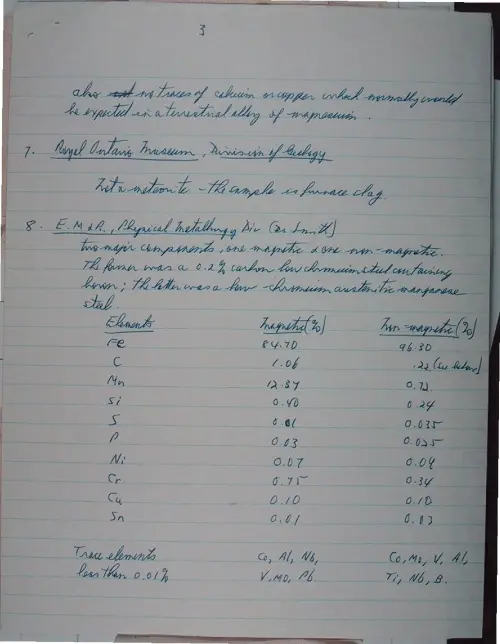 3
also no traces of calcium or copper which normally would
be expected in a terrestrial alloy of magnesium.
7. Royal Ontario Museum, Division of Geology
Not a meteorite - the sample is furnace slag.
8. E.M.&R., Physical Metallurgy Div (Dr Smith)
two major components, one magnetic & one non-magnetic.
The former was a 0.2% carbon low chromium steel containing
boron; the latter was a low-chromium austenitic manganese
steel.
Elements Magnetic (%) Non-magnetic (%)
Fe 84.70 96.30
C 1.06 .22 (see below)
Mn 12.87 0.72
Si 0.40 0.24
S 0.01 0.035
P 0.03 0.025
Ni 0.07 0.09
Cr 0.75 0.34
Cu 0.10 0.10
Sn 0.01 0.03
Trace elements Co, Al, Nb, Co, Mo, V, Al,
less than 0.01% V, Mo, Pb. Ti, Nb, B.